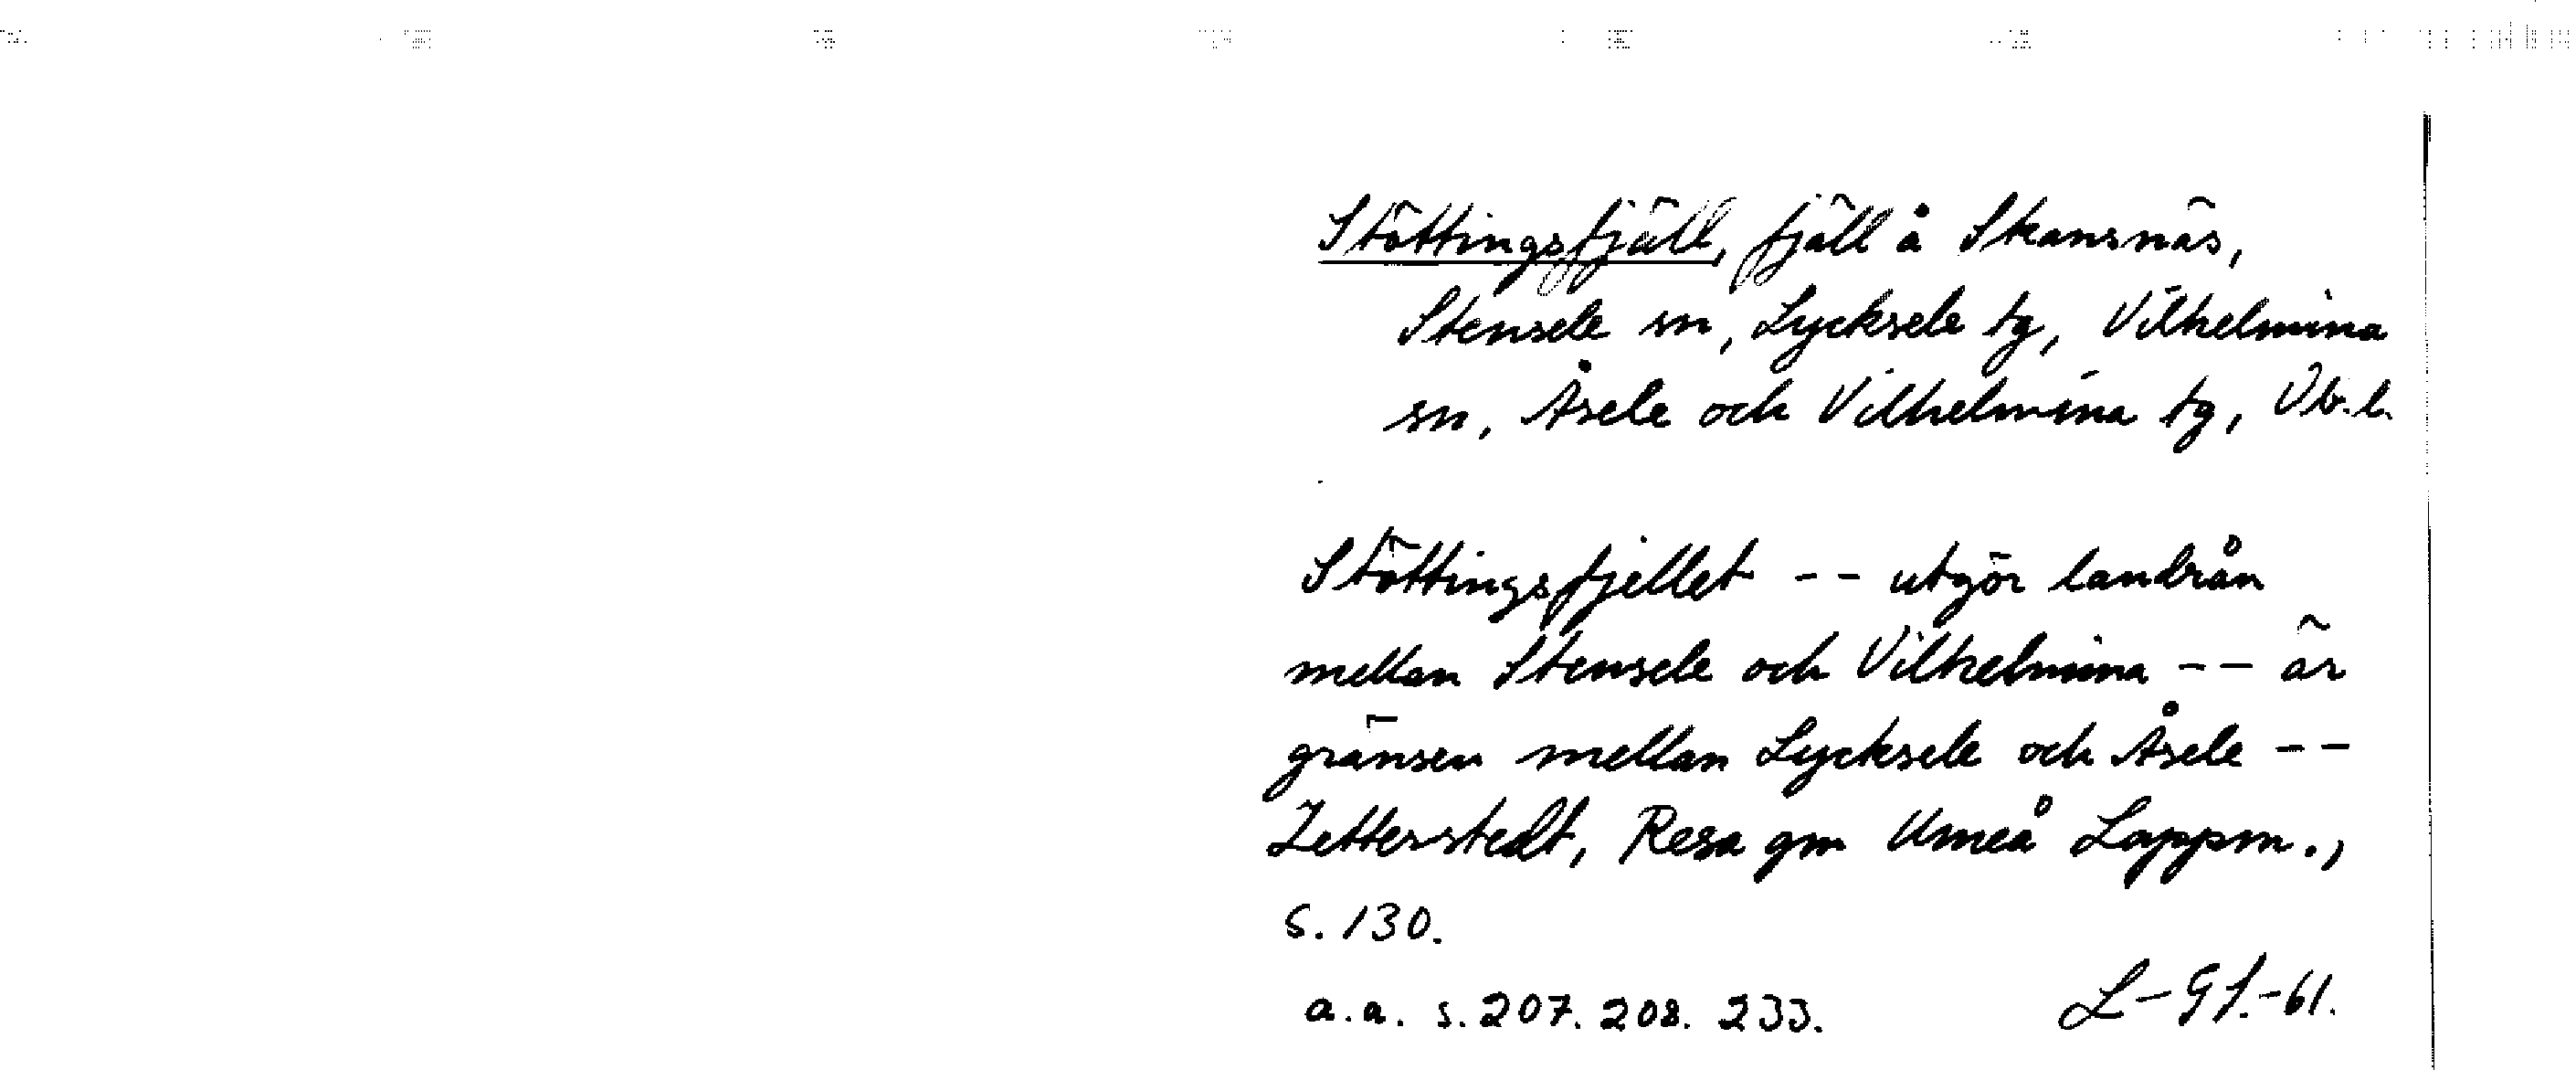 Stöttingsfjäll, fjäll å Skansnäs,
Stensele sn, Lycksele tg, Vilhelmina
sn, Åsele och Vilhelmina tg, Vb.l.
Stöttingsfjellet -- utgör landrån
mellan Stensele och Vilhelmina -- är
gränsen mellan Lycksele och Åsele --
Zetterstedt, Resa gm Umeå Lappm.,
s. 130.
a.a. s. 207. 208. 233. L-GS.-61.